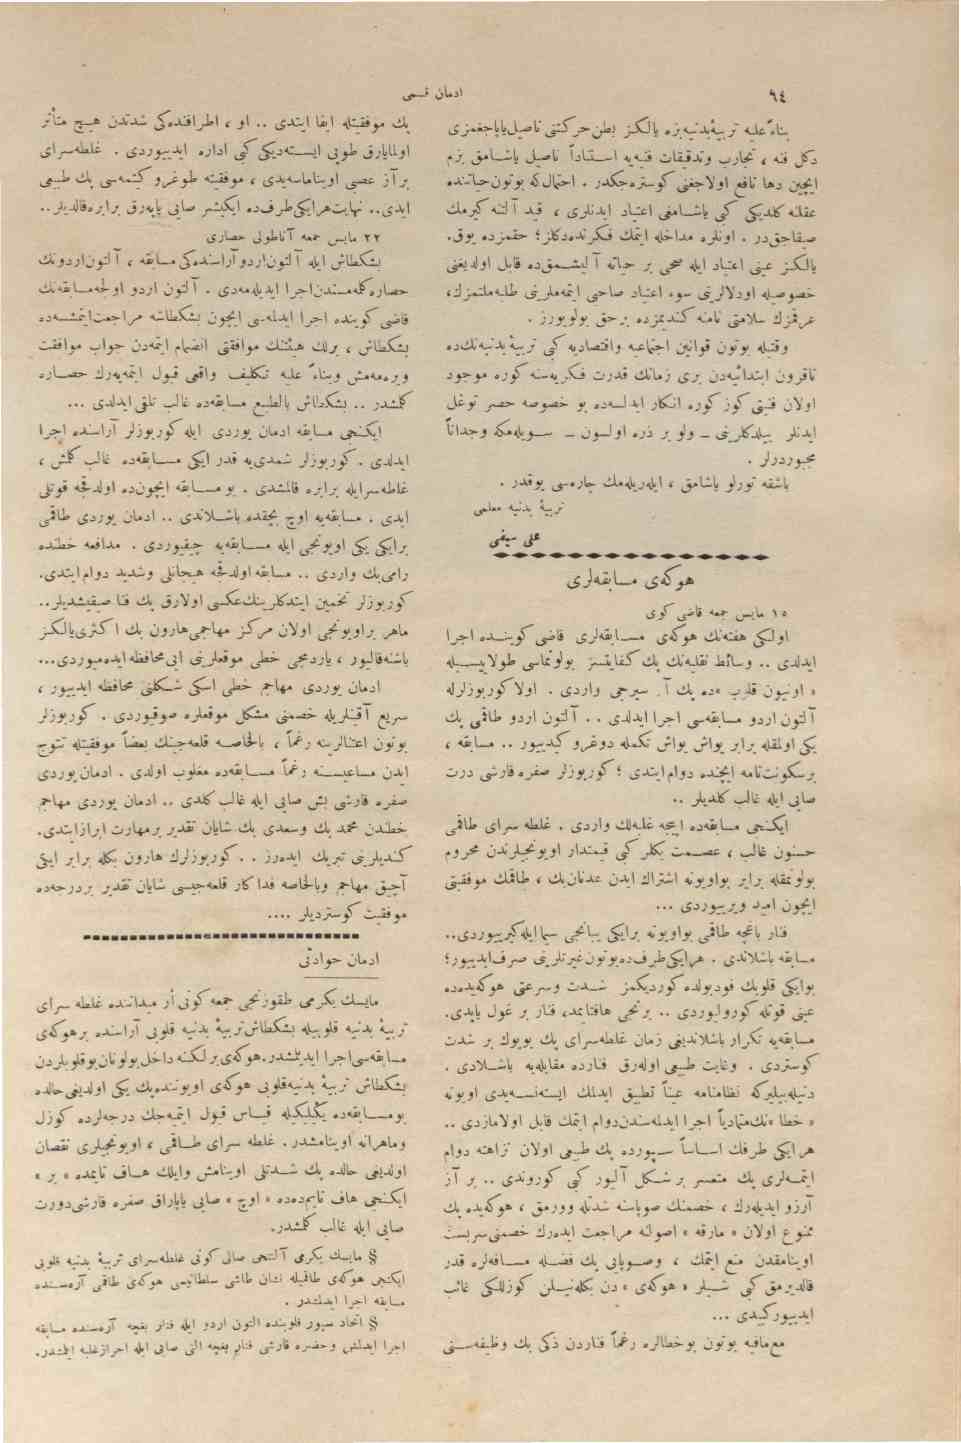 ٩٤
ادمان قسمى
بناءً عليه تربيۀ بدنيه‌يزه يالكز بطن حركتنى ناصل ياپاجغمزى
دكل فنه ، تجارب و تدقيقات فنيه‌يه استناداً ناصل ياشامق بزم
ايچين دها نافع اولاجغنى كوستره‌جكدر . احتمال كه بوتون حياتنده
عقلنه كلديكى كبى ياشامغى اعتياد ايدنلرى ، قيد آلتنه كيرمك
صيقاجقدر . اونلره مداخله ايتمك فكرنده دكلز؛ حقمزده يوق.
يالكز عينى اعتياد ايله صحى بر حياته آليشمقده قابل اولديغنى
خصوصيله اودلالرينى سوء اعتياد صاحبى ايتمه‌ملرينى طلبه‌لمتمزك،
عرقمزك سلامتى نامنه كنديمزده بر حق بولويورز .
وقتيله بوتون قوانين اجتماعيه واقتصاديه كبى تربيۀ بدنيه‌نك ده
تاقرون ابتدائيه‌دن برى زمانك قدرت فكريه‌سنه كوره موجود
اولان قيمتى كوز كوره انكار ايدلسه‌ده بو خصوصه حصر توغل
ايدنلر بيلدكلرينى ــ ولو بر ذره اولسون ــ سويله‌مكه وجداناً
مجبوردرلر .
باشقه تورلو ياشامق ، ايلريله‌مك چاره‌سى يوقدر .
تربيۀ بدنيه معلمى
على سيفى
هوكه‌ى مسابقه‌لرى
١٥ مايس جمعه قاضى كوى
اولكى هفته‌نك هوكه‌ى مسابقه‌لرى قاضى كوينده اجرا
ايدلدى .. وسائط نقليه‌نك پك كفايتسز بولونماسى طولاييسيله
« اونيون قلوب »ده پك آز سيرجى واردى . اولا كوربوزلرله
آلتون اردو مسابقه‌سى اجرا ايدلدى . . آلتون اردو طاقمى پك
يكى اولمقله برابر يواش يواش تكمله دوغرو كيدييور .. مسابقه ،
بر سكونت‌نامه ايچنده دوام ايتدى ؛ كوربوزلر صفره قارشى درت
صايى ايله غالب كلديلر ..
ايكنجى مسابقه‌ده ايچه غلبه‌لك واردى . غلطه سراى طاقمى
حسنون غالب ، عصمت بكلر كبى قيمتدار اويونجيلرندن محروم
بولونمقله برابر بو اويونه اشتراك ايدن عدنان بك ، طاقمك موفقيتى
ايچون اميد ويرييوردى ...
فنار باغچه طاقمى بواويونه برايكى يبانجى سيما ايله كيرييوردى..
مسابقه باشلاندى . هرايكى طرف ده بوتون غيرتلرينى صرف ايدييور؛
بوايكى قلوبك فودبولده كورديكمز شدت و سرعتى هوكه‌يده‌ده
عينى قوتله كورولويوردى .. برنجى هافتايمد، فنار بر غول ياپدى.
مسابقه‌يه تكرار باشلانديغى زمان غلطه‌سراى پك بويوك بر شدت
كوستردى . وغايت طبيعى اوله‌رق فنارده مقابله‌يه باشلادى .
دنيله‌بيليركه نظامنامه عيناً تطبيق ايدلمك ايسته‌نسه‌يدى اويونه
« خطا »نك متمادياً اجرا ايدلمه‌سندن دوام ايتمك قابل اولامازدى ..
هرايكى طرفك اساساً سپورده پك طبيعى اولان نزاهته دوام
ايتمه‌لرى پك متعسر بر شكل آليور كبى كوروندى .. بر آز
آرزو ايديله‌رك ، خصمنك صوپاسنه شدتله وورمق ، هوكه‌يده پك
ممنوع اولان « مارقه » اصولنه مراجعت ايده‌رك خصمنى سربست
اوينامقدن منع ايتمك ، وصوپايى پك فضله مسافه‌لره قدر
قالديرمق كبى شيلر « هوكه‌ى » دن بكله‌نيلن كوزللكى غائب
ايدييور كيدى ...
مع‌مافيه بوتون بو خطالره رغماً فناردن ذكى بك وظيفه‌سنى
پك موفقيتله ايفا ايتدى .. او ، اطرافنده‌كى شدتدن هيچ متأثر
اولمايارق طوپى ايسته‌ديكى كبى اداره ايدييوردى . غلطه‌سراى
بر آز عصبى اويناماسه‌يدى ، موفقيته طوغرو كتمه‌سى پك طبيعى
ايدى.. نهايت هرايكى طرف ده ايكيشر صايى ياپه‌رق برابره قالديلر..
٢٢ مايس جمعه آناطولى حصارى
بشكطاش ايله آلتون اردو آراسنده‌كى مسابقه ، آلتون اردونك
حصاره كلمه‌مسندن اجرا ايديله‌مه‌دى . آلتون اردو اولجه مسابقه‌نك
قاضى كوينده اجرا ايدلمه‌سى ايچون بشكطاشه مراجعت ايتمشسه‌ده
بشكطاش ، برلك هيئتنك موافقتى انضمام ايتمه‌دن جواب موافقت
ويره‌مه‌مش وبناءً عليه تكليف واقعى قبول ايتمه‌يه‌رك حصاره
كلمشدر .. بشكطاش بالطبع مسابقه‌ده غالب تلقى ايدلدى ...
ايكنجى مسابقه ادمان يوردى ايله كوربوزلر آراسنده اجرا
ايدلدى . كوربوزلر شمدى‌يه قدر ايكى مسابقه‌ده غالب كلمش ،
غلطه‌سرايله برابره قالمشدى . بو مسابقه ايچون‌ده اولدقجه قوتلى
ايدى . مسابقه‌يه اوچ بچقده باشلاندى .. ادمان يوردى طاقمى
برايكى يكى اويونجى ايله مسابقه‌يه چيقيوردى . مدافعه خطنده
رامى بك واردى .. مسابقه اولدقجه هيجانلى وشديد دوام ايتدى.
كوربوزلر تخمين ايتدكلرينك عكسى اولارق پك فنا صيقيشديلر..
ماهر براويونجى اولان مركز مهاجمى هارون بك اكثرى يالكز
باشنه قاليور ، ياردمجى خطى موقعلرينى ايى محافظه ايده‌ميوردى...
ادمان يوردى مهاجم خطى اسكى شكلنى محافظه ايدييور ،
سريع آقينلريله خصمنى مشكل موقعلره صوقيوردى . كوربوزلر
بوتون اعتنالرينه رغماً ، بالخاصه قلعه‌جينك بعضاً موفقيتله تتوج
ايدن مساعيسنه رغماً مسابقه‌ده مغلوب اولدى . ادمان يوردى
صفره قارشى بش صايى ايله غالب كلدى .. ادمان يوردى مهاجم
خطندن محمد بك وسعدى بك شايان تقدير بر مهارت ابراز ايتدى.
كنديلرينى تبريك ايده‌رز . . كوربوزلرك هارون بكله برابر ايكى
آچيق مهاجم وبالخاصه فداكار قلعه‌جيسى شايان تقدير بر درجه‌ده
موفقيت كوسترديلر ....
ادمان حوادثى
مايسك يكرمى طقوزنجى جمعه كونى أر ميداننده غلطه سراى
تربيۀ بدنيه قلوبيله بشكطاش تربيۀ بدنيه قلوبى آراسنده بر هوكه‌ى
مسابقه‌سى اجرا ايديلمشدر. هوكه‌ى برلكنه داخل بولونان بو قلوبلردن
بشكطاش تربيۀ بدنيه قلوبى هوكه‌ى اويوننده پك يكى اولديغى حالده
بو مسابقه‌ده يكيلكيله قياس قبول ايتميه‌جك درجه‌لرده كوزل
وماهرانه اوينامشدر. غلطه سراى طاقمى ، اويونجيلرى نقصان
اولديغى حالده پك شدتلى اوينامش وايلك هاف تايمده « بر »
ايكنجى هاف تايم‌ده‌ده « اوچ » صايى ياپاراق صفره قارشى دورت
صايى ايله غالب كلمشدر.
§ مايسك يكرمى آلتنجى صالى كونى غلطه‌سراى تربيۀ بدنيه قلوبى
ايكنجى هوكه‌ى طاقميله نشان طاشى سلطانيسى هوكه‌ى طاقمى آره‌سنده
مسابقه اجرا ايدلمشدر .
§ اتحاد سپور قلوبنده التون اردو ايله فنار بغچه آره‌سنده مسابقه
اجرا ايدلمش وحضره قارشى فنار بغچه التى صايى ايله احراز غلبه ايتمشدر.